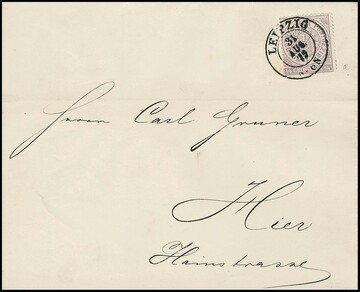 LEIPZIG
31
AUG.
Herrn Carl Gruner
Hier
Hainstrasse